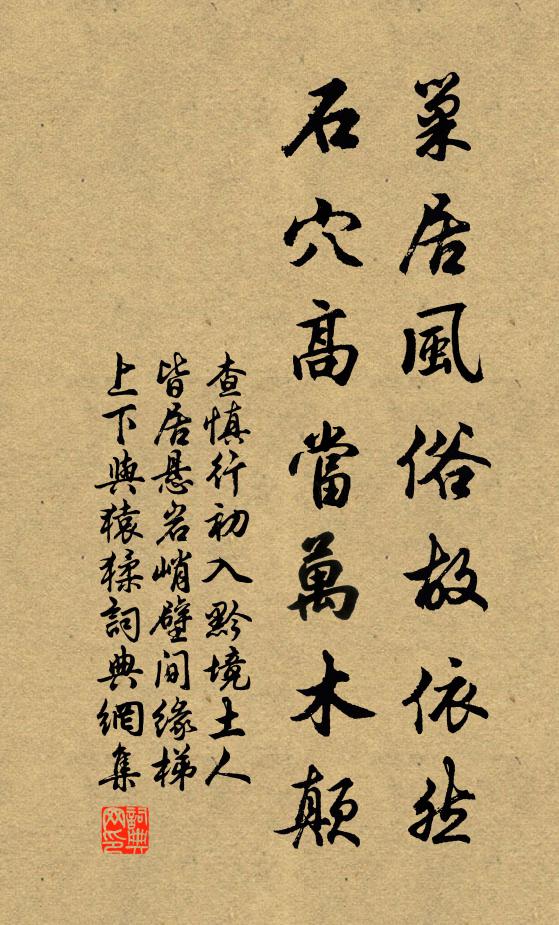 巢居風俗故依然
石穴高當萬木顛
查慎行初入黔境土人
皆居悬岩峭壁间緣梯
上下與猿猱詞典網集
詞典網印